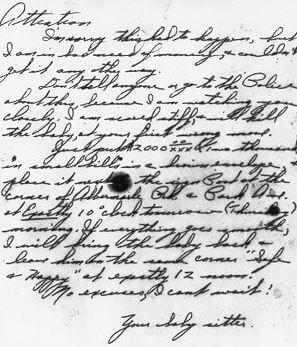 Attention
I'm sorry this had to happen, but
I am in bad need of money, & couldn't
get it any other way.
Don't tell anyone or go to the Police
about this, because I am watching you
closely. I am scared stiff, & will kill
the baby, at your first wrong move.
Just put $2000 (two thousand)
in small bills in a brown envelope, &
place it next to the sign Post at the
corner of Albemarle Rd. & Park Ave.
at Exactly 10 o'clock tomorrow (Thursday)
morning. If everything goes smooth,
I will bring the baby back &
leave him on the same corner "Safe
& Happy" at exactly 12 noon.
No excuses, I can't wait!
Your baby sitter.